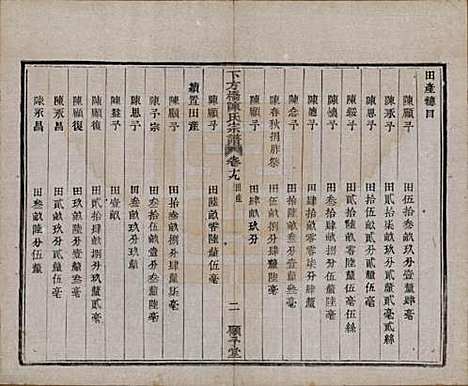 田產總目
陳顯予　田伍拾陸畝玖分壹釐肆毫
陳承予　田貳拾柒畝玖分叁釐叁毫
陳綏予　田拾伍畝貳分貳釐貳毫
陳德予　田叁拾畝貳釐伍毫伍絲
陳德予　田肆拾畝零零柒分
陳念予　田拾陸畝捌分伍釐
陳春秋捌胙祭　田肆畝玖分
下方橋陳氏宗譜　卷十九　田產　二　顯承堂
陳顯予　田陸畝零陸釐伍毫
續置田產
陳顯予　田拾畝捌分肆釐柒毫
陳予宗　田叁拾伍畝壹分叁釐陸毫
陳駐予　田叁畝玖分釐
陳顯復　田壹畝
陳顯復　田貳拾肆畝捌分玖釐貳毫
陳承昌　田貳畝玖分貳釐伍毫
陳承昌　田叁畝陸分伍釐